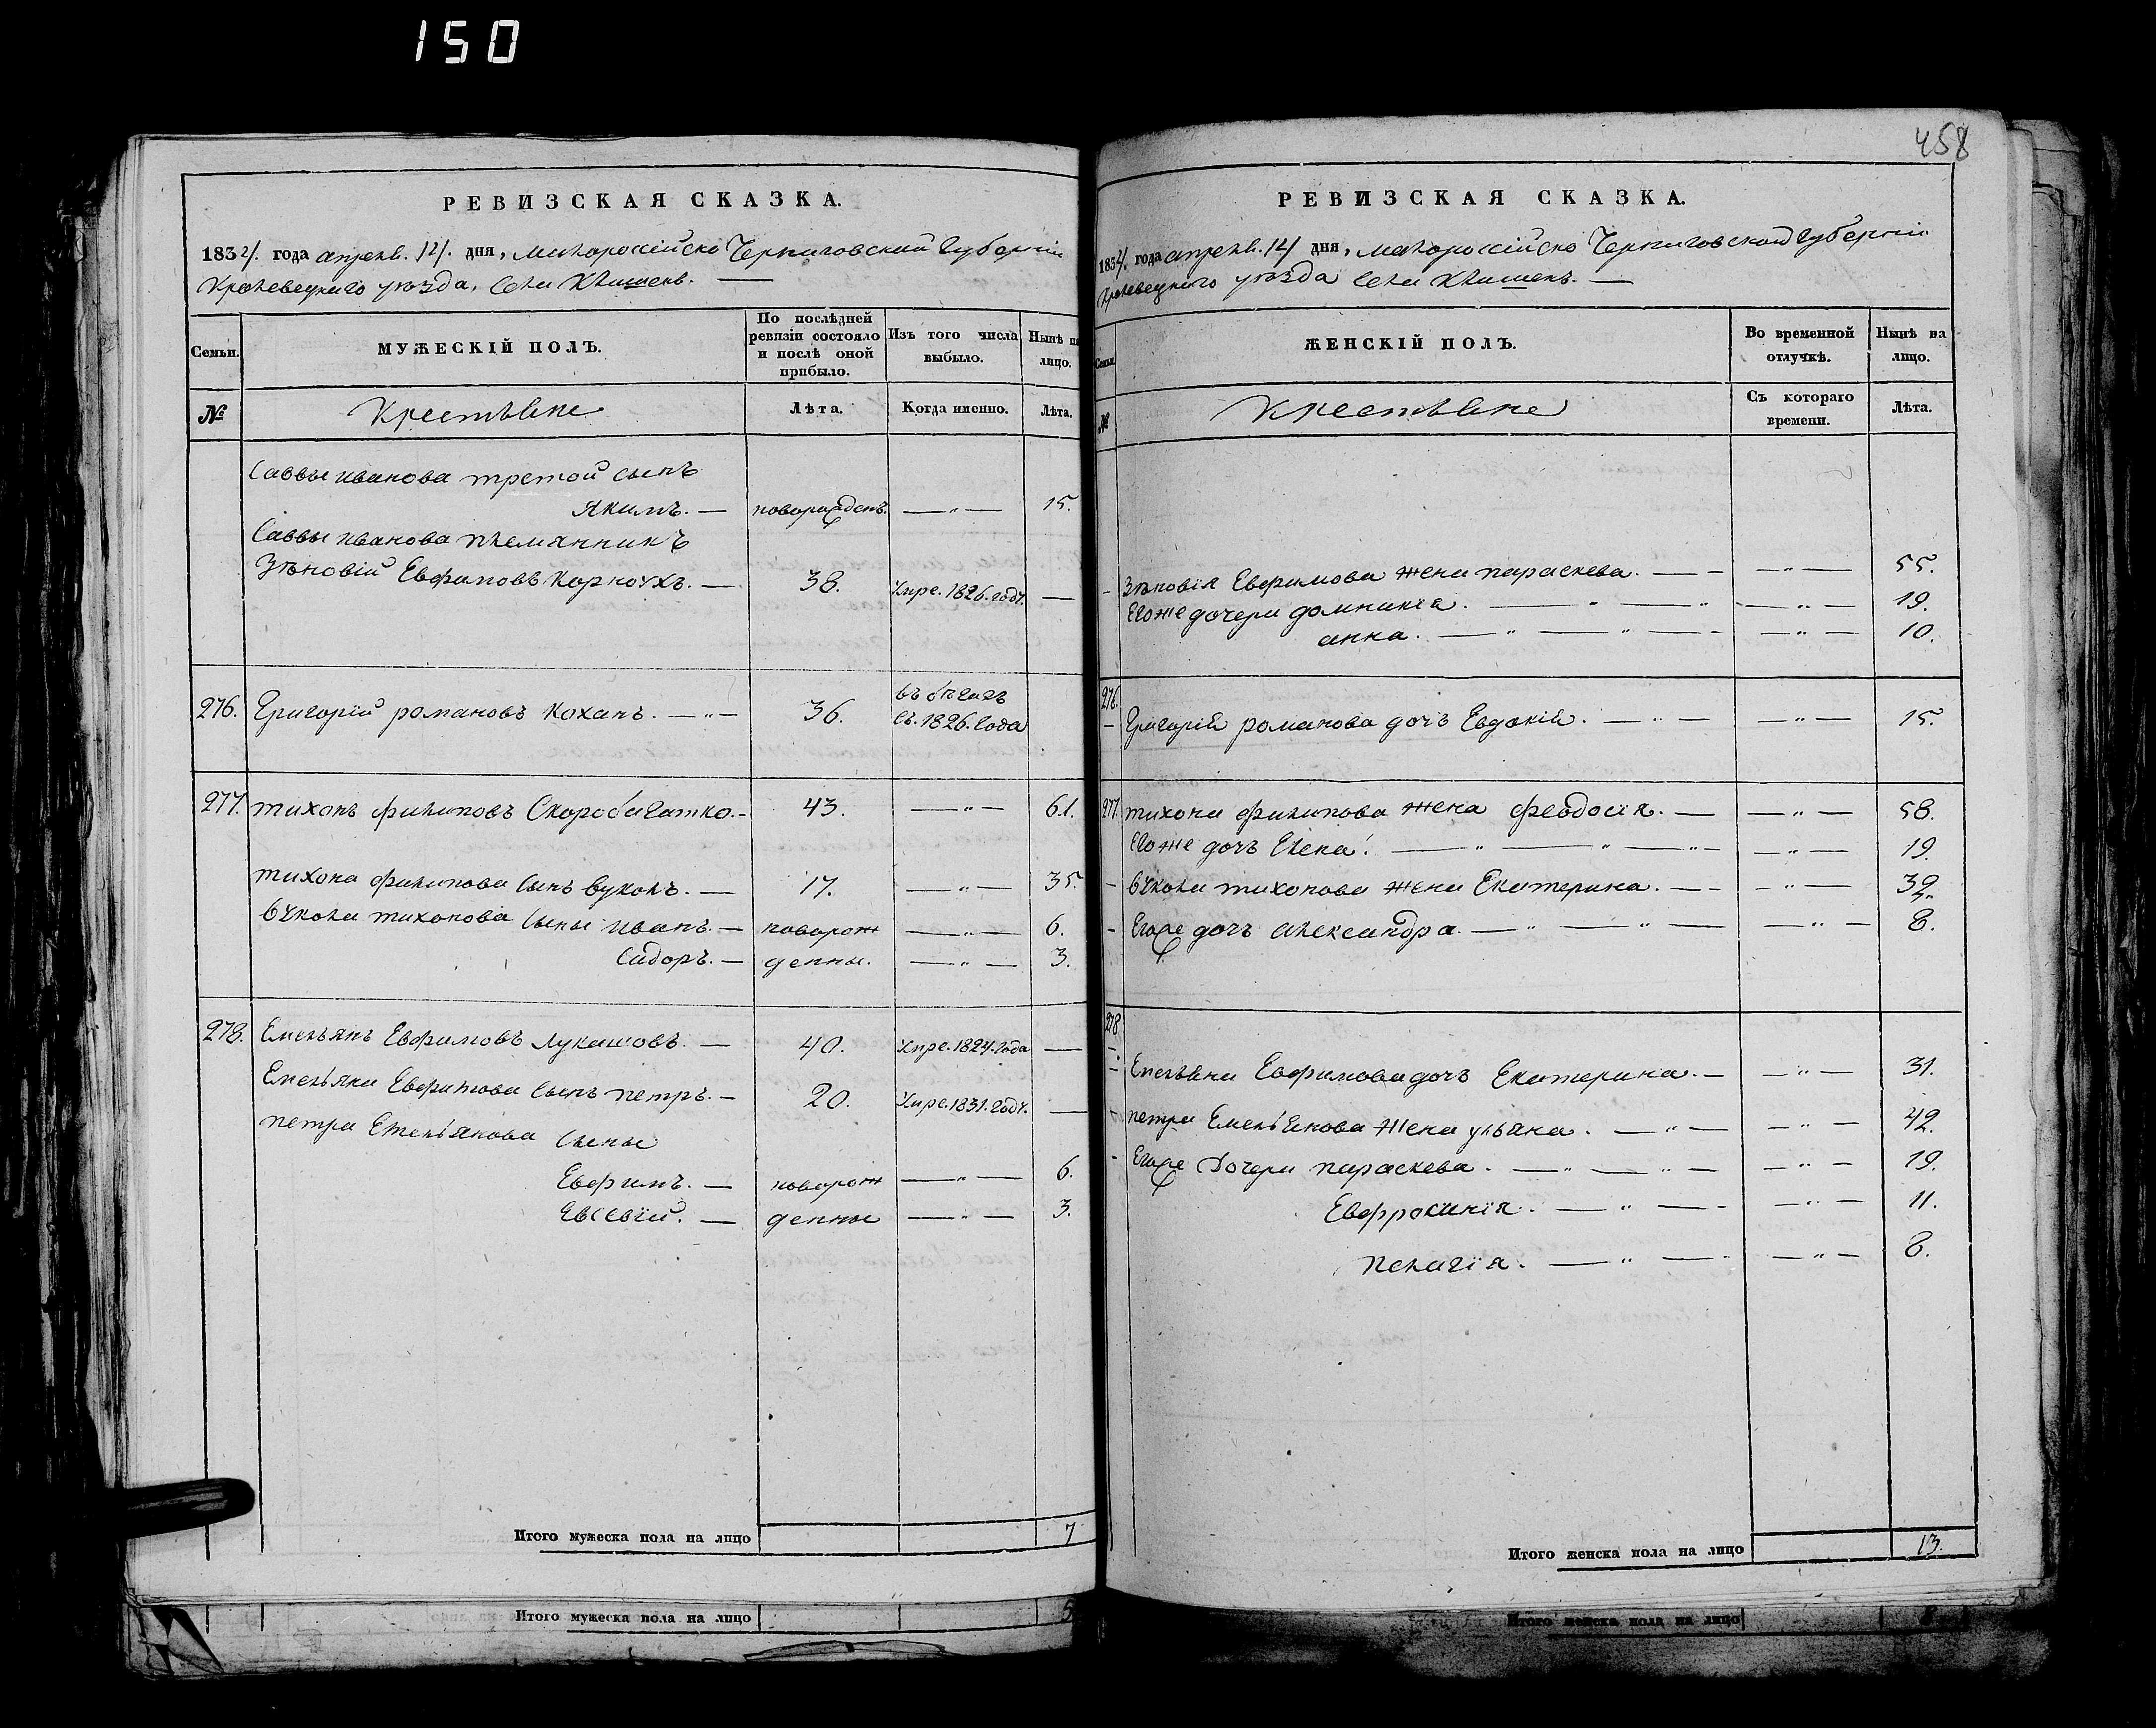 150
458
РЕВИЗСКАЯ СКАЗКА.
1834. года апреля. 14. дня, малороссійско Черниговской Губерніи
Кролевецкаго уѣзда, села Клишекъ. —
Семьи.
МУЖЕСКІЙ ПОЛЪ.
По послѣдней ревизіи состояло и послѣ оной прибыло.
Изъ того числа выбыло.
Нынѣ на лицо.
№
Крестьяне
Лѣта.
Когда именно.
Лѣта.
Саввы иванова третой сынъ
якимъ. — новорожденъ. — „ — 15.
Саввы иванова племянникъ
Зѣновій Евфимовъ — 38. умре. 1826. году. —
276. Григорій романовъ Коханъ. — „ — 36. въ бѣгахъ
съ. 1826. года
277. тихонъ филиповъ Скоробагатко. - 43. — „ — 61.
тихона филипова сынъ вуколъ. — 17. — „ — 35.
вукола тихонова сыны иванъ. — поворож — „ — 6.
Сидоръ. — денны. — „ — 3.
278. Емельянъ Евфимовъ лукашовъ. — 40. умре. 1824. года —
Емельяна Евфимова сынъ петръ. — 20. умре. 1831. году. —
петра Емельянова сыны
Евфимъ. — новорож — „ — 6.
Евсевій. — денны — „ — 3.
Итого мужеска пола на лицо 7
Итого мужеска пола на лицо 5
РЕВИЗСКАЯ СКАЗКА.
1834. года апреля. 14 дня, малороссійско Черниговской Губерніи
Кролевецкаго уѣзда села Клишекъ. —
Семьи.
ЖЕНСКІЙ ПОЛЪ.
Во временной отлучкѣ.
Нынѣ на лицо.
№
Крестьяне
Съ котораго времени.
Лѣта.
Зѣновія Евфимова жена параскева. — - — „ — 55.
Егоже дочери домникія. — „ — „ - — „ — 19.
анна. — „ — „ — - — „ — 10.
276. Григорія романова дочь Евдокія. — „ — — „ — 15.
277. тихона филипова жена феодосія. — — „ — 58.
Егоже дочь Елена. — „ — „ — „ - — „ — 19.
- вукола тихонова жена Екатерина. — - - „ — 39.
- Егоже дочь александра. — „ — „ — — „ — 8.
278
- Емельяна Евфимова дочь Екатерина. — — „ — 31.
- петра Емельянова жена ульяна. — „ — — „ — 42.
- Егоже дочери параскева. — „ — „ — — „ — 19.
Евфросинія. — „ — - — „ — 11.
пелагія. — „ — - — „ — 8.
Итого женска пола на лицо 13.
Итого женска пола на лицо 8